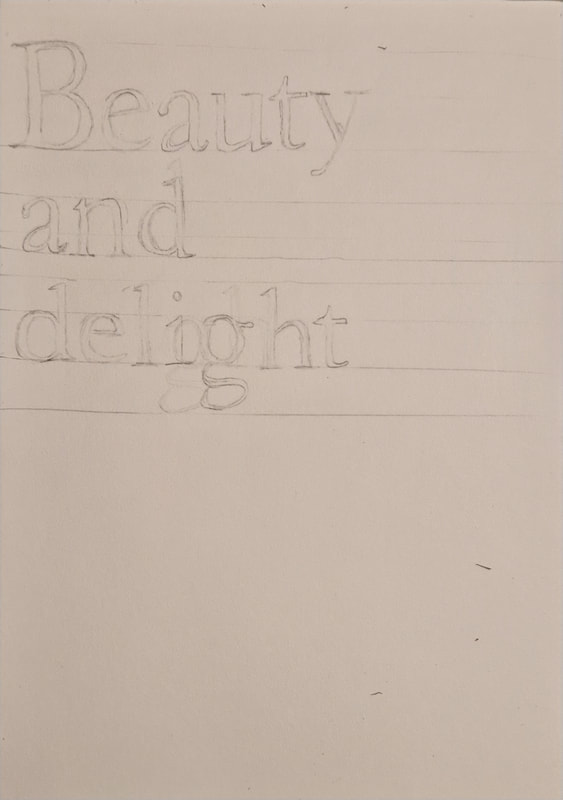 Beauty
and
delight